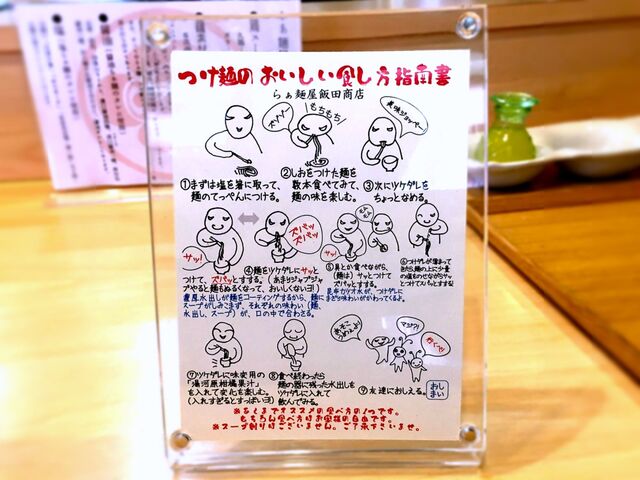 つけ麺のおいしい食し方指南書
らぁ麺屋飯田商店
ズゾゾ
もちもち
①まずは塩を箸に取って、
麺のてっぺんにつける。
②しおをつけた麺を
数本食べてみて、
麺の味を楽しむ。
③次にツケダレを
ちょっとなめる。
サッ!
ズバッ
ズバッ
④麺をツケダレにサッと
つけて、ズバッとすする。(あまりジャブジャ
ブやると麺もぬるくなって、おいしくないヨ!)
昆布水出しが麺をコーティングするから、麺に
スープがしみこまず、それぞれの味わい(麺、
水出し、スープ)が、口の中で合わさる。
⑤具とか食べながら、
(麺は)サッとつけて
ズバッとすする。
昆布カツオ水が、ツケダレに
まざり味わいがかわってくるよ。
⑥つけダレが薄まって
きたら、麺の上に少量
の塩をのせながらサッ
とつけてズバッとすする!
⑦ツケダレに味変用の
「湯河原柑橘果汁」
を入れて変化を楽しむ。
(入れすぎるとすっぱいヨ)
⑧食べ終わったら
麺の器に残った水出しを
ツケダレに入れて
飲んでみる。
マジ?!
行くっ!
⑨友達におしえる。
おしまい
※あくまでオススメの食べ方の1つです。
もちろん食べ方はお客様の自由です。
※スープ割りはございません。ご了承下さいませ。